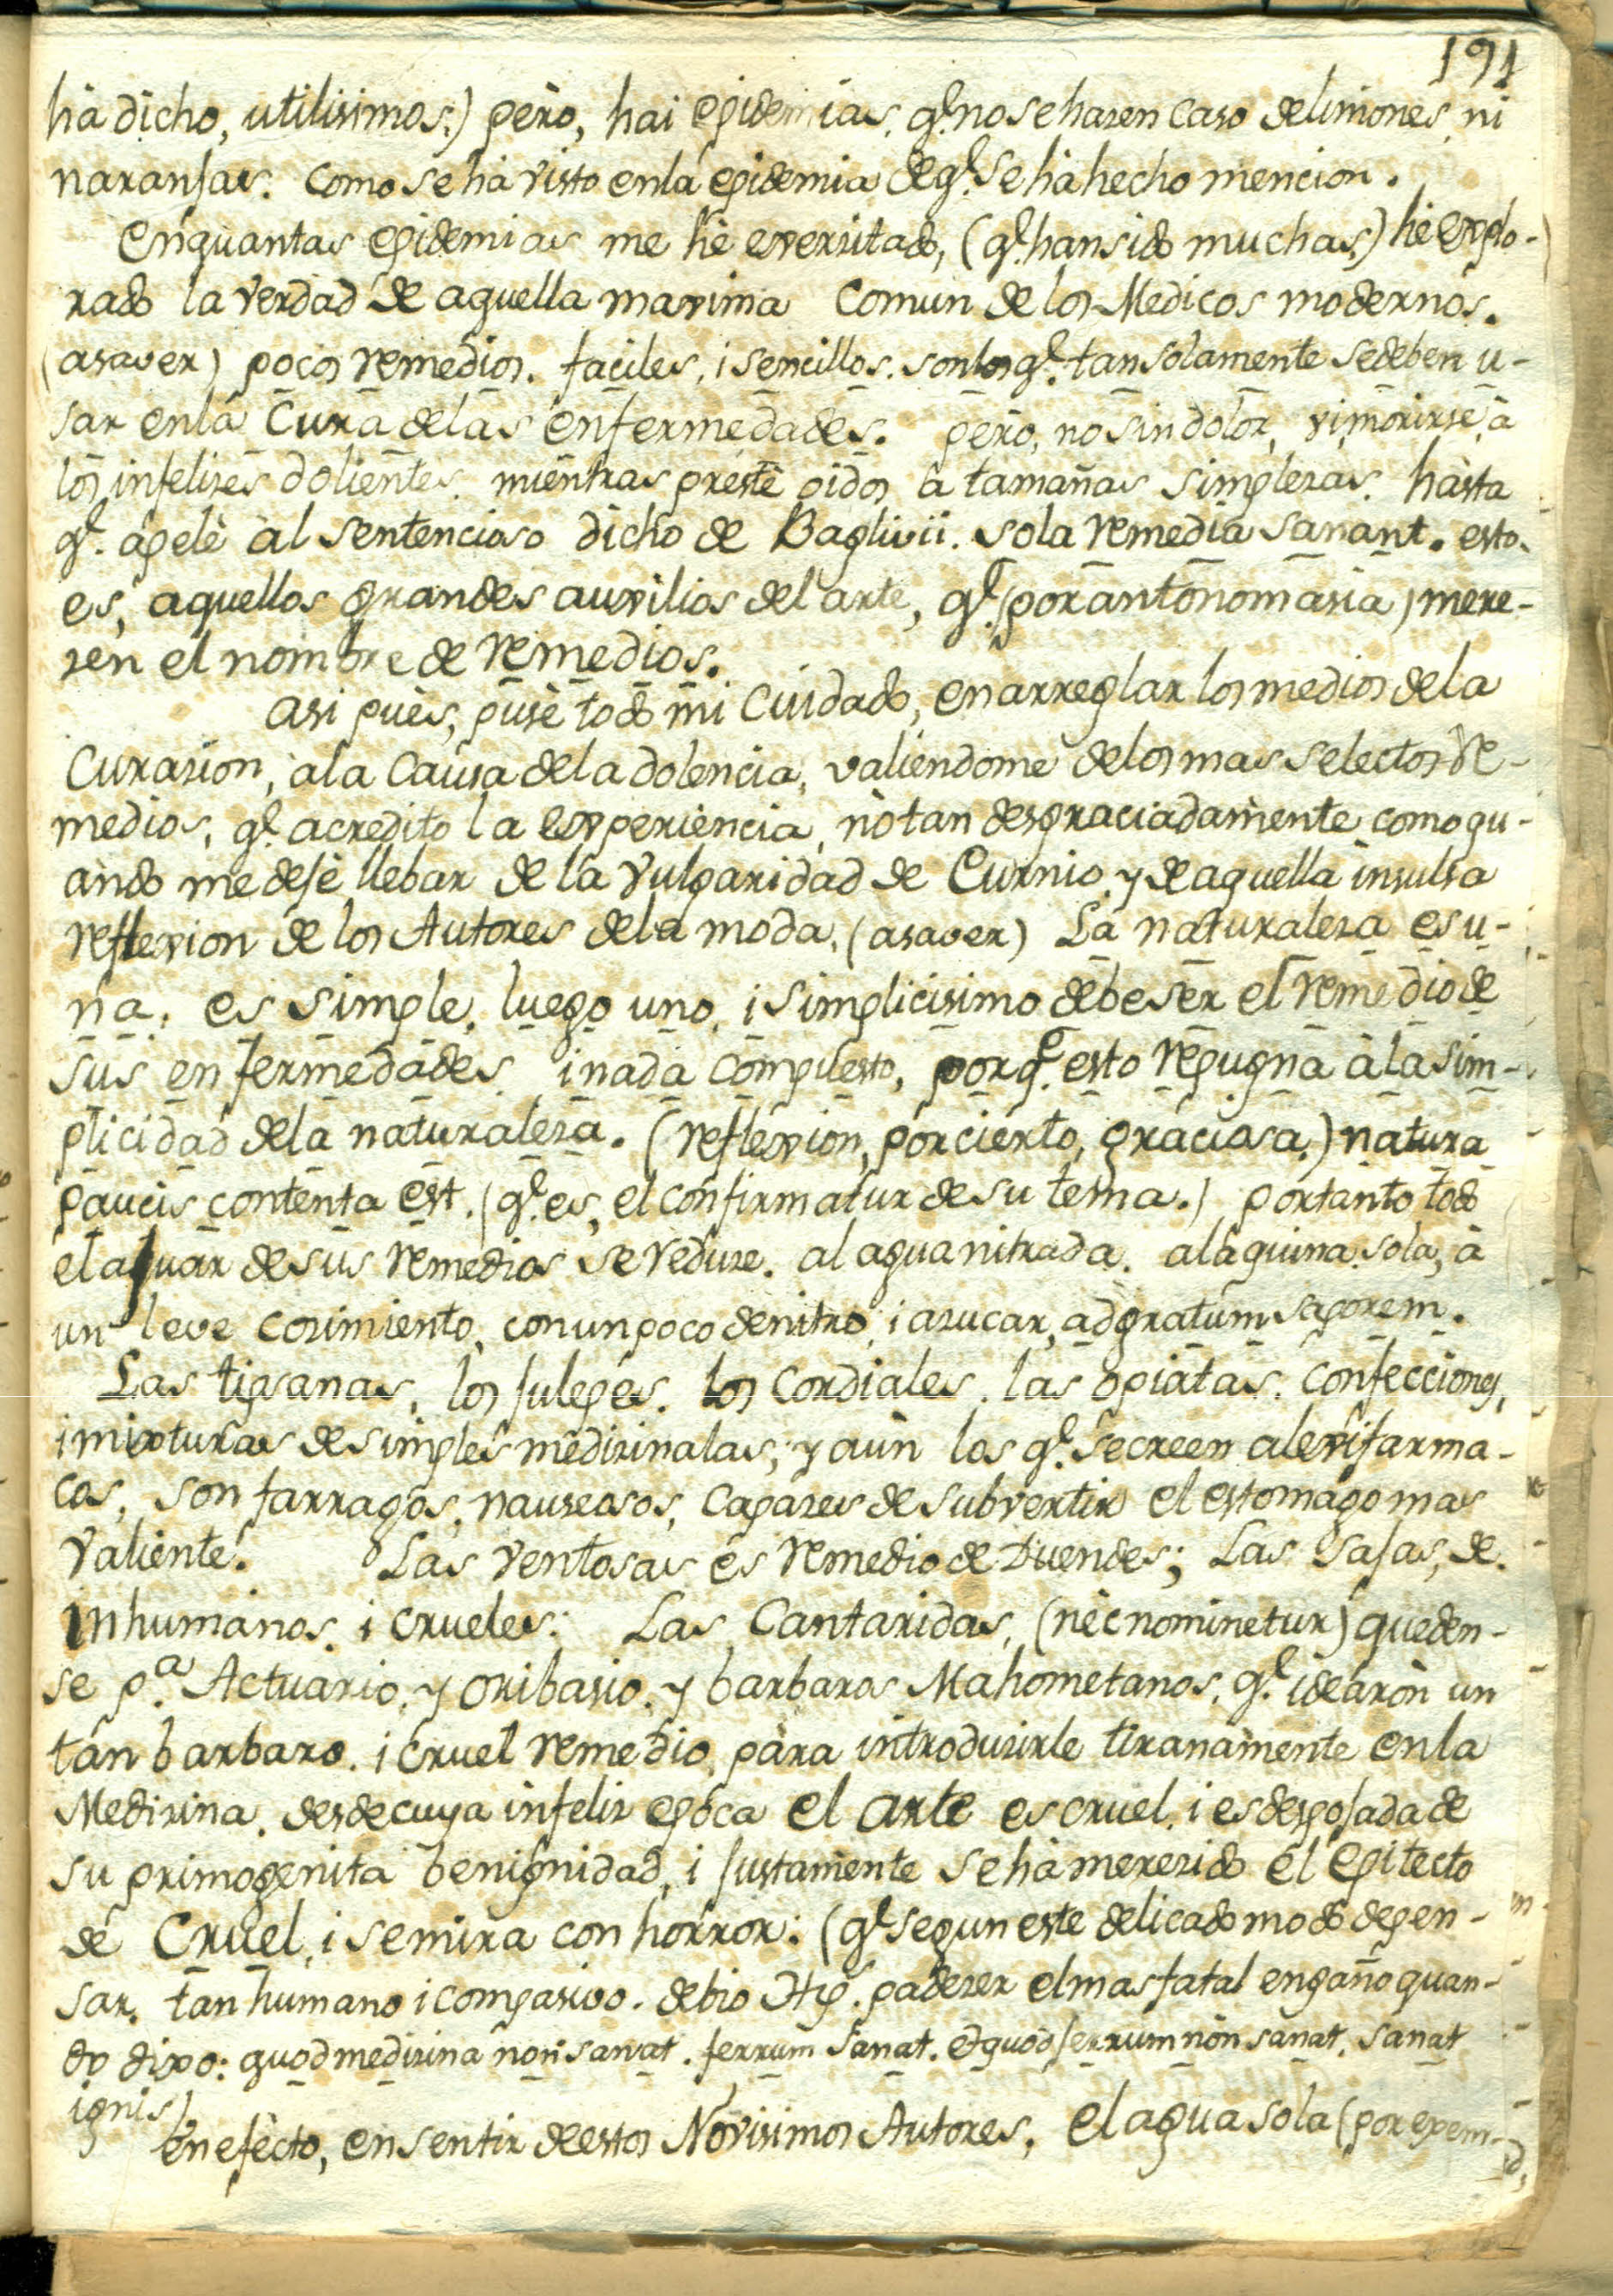 191
hà dicho, utilisimos:) pèro, hai epidemias. q.e no se hazen caso de limones, ni
naranjas. Como se ha visto en la epidemia de q.e se ha hecho mencion.
En quantas epidemias me hè exerzitado, (q.e han sido muchas) hè explo-
rado la verdad de aquella maxima Comun de los Medicos modernos.
(asaver) pocos remedios. faciles. i sencillos. son los q.e tan solamente se deben u-
sar en la Cura de las enfermedades. pero, no sin dolor, vi morirse à
los infelizes dolientes. mientras prestè oidos à tamañas simplezas. hasta
q.e apelè al sentencioso dicho de Baglivii. sola remedia sanant. esto
es, aquellos grandes auxilios del arte, q.e (por antonomasia) mere-
zen el nombre de remedios.
Asi pues, pusè todo mi Cuidado, en arreglar los medios de la
Curazion, à la Causa de la dolencia, valiendome de los mas selectos re-
medios, q.e acredito la experiencia, no tan desgraciadamente como qu-
ando me dejè llebar de la vulgaridad de Curnio y de aquella insulsa
reflexion de los Autores de la moda, (asaver) La naturaleza es u-
na, es simple, luego uno, i simplicisimo debe ser el remedio de
sus enfermedades inada compuesto, porq.e esto repugna à la sim-
plicidad de la naturaleza. (reflexion, por cierto, graciosa.) natura
paucis contenta est. (q.e es, el confirmatur de su tema.) portanto todo
el ajuar de sus remedios se reduze. al agua nitrada. a la quina sola, à
un leve cozimiento, con un poco de nitro, i azucar, ad gratum saporem.
Las tipsanas, los julepes. los Cordiales. las opiatas. Confecciones,
i mixturas de simples medizinalas; y aùn los q.e se creen alexifarma-
cos, son farragos, nauseosos, Capazes de subvertir el estomago mas
valiente. Las ventosas es remedio de Duendes; Las sajas, de
inhumanos, i crueles: Las Cantaridas, (nèc nominetur) queden-
se p.a Actuario, y Oribasio, y barbaros Mahometanos, q.e idearòn un
tan barbaro. i cruel remedio, pàra introduzirle tiranamente en la
Medizina, desde cuya infeliz epòca el arte es cruel, i es despojada de
su primogenita benignidad, i justamente se hà merezido el epitecto
de Cruel, i se mira con horror: (q.e segun este delicado modo de pen-
sar. tan humano i compasivo. debio Hip. padezer el mas fatal engaño quan-
do dixo: quod medizina non sanat. ferrum sanat. et quod ferrum non sanat. sanat
ignis).
En efècto, en sentir de estos Novisimos Autores, El agua sola (por exem-